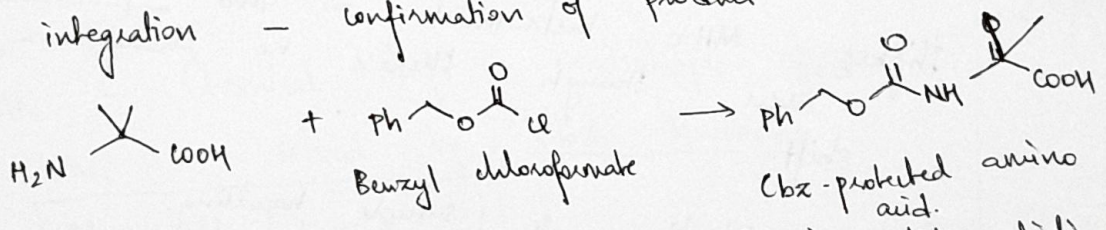 integration – confirmation of
H₂N COOH + Ph O O Cl → Ph O O NH O COOH
Benzyl chloroformate
Cbz-protected amino
acid.